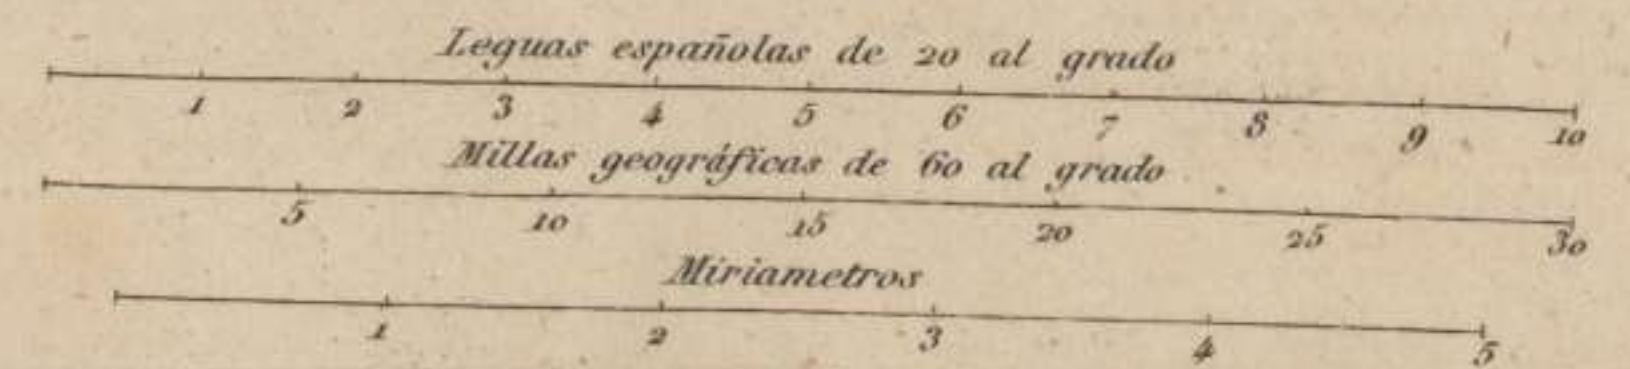 Leguas españolas de 20 al grado
1 2 3 4 5 6 7 8 9 10
Millas geográficas de 60 al grado
5 10 15 20 25 30
Miriametros
1 2 3 4 5